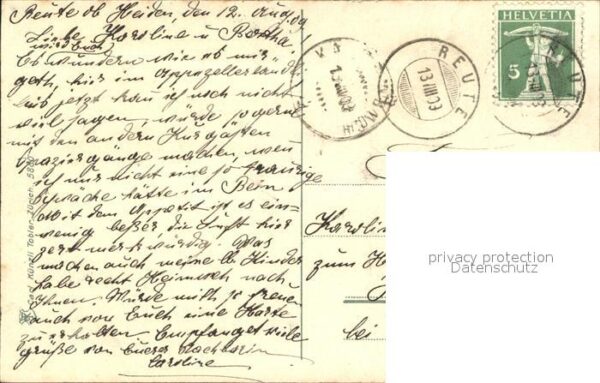 Reute ob Heiden, den 12. Aug. 09
Liebe Karoline u Bertha
wird Euch
wundern wie es mir
geht, hier im Appenzellerland
jetzt kann ich noch nicht
viel sagen, würde so gern
mit den andern Kurgästen
Spaziergänge machen, wenn
ich nur nicht eine so traurige
hätte im Bein
mit dem Appetit ist es ein
wenig besser, die Luft hier
zert merkwürdig. Was
machen auch meine lb Kinder
habe recht Heimweh nach
Ihnen. Würde mich so freuen
auch von Euch eine Karte
zu erhalten. Empfanget viele
grüße von Eurer Nachbarin
Caroline
HELVETIA
5
REUTE
13 VIII 09
REUTE
Karoline
zum H
bei
privacy protection
Datenschutz
Künzli Tobler Zürich